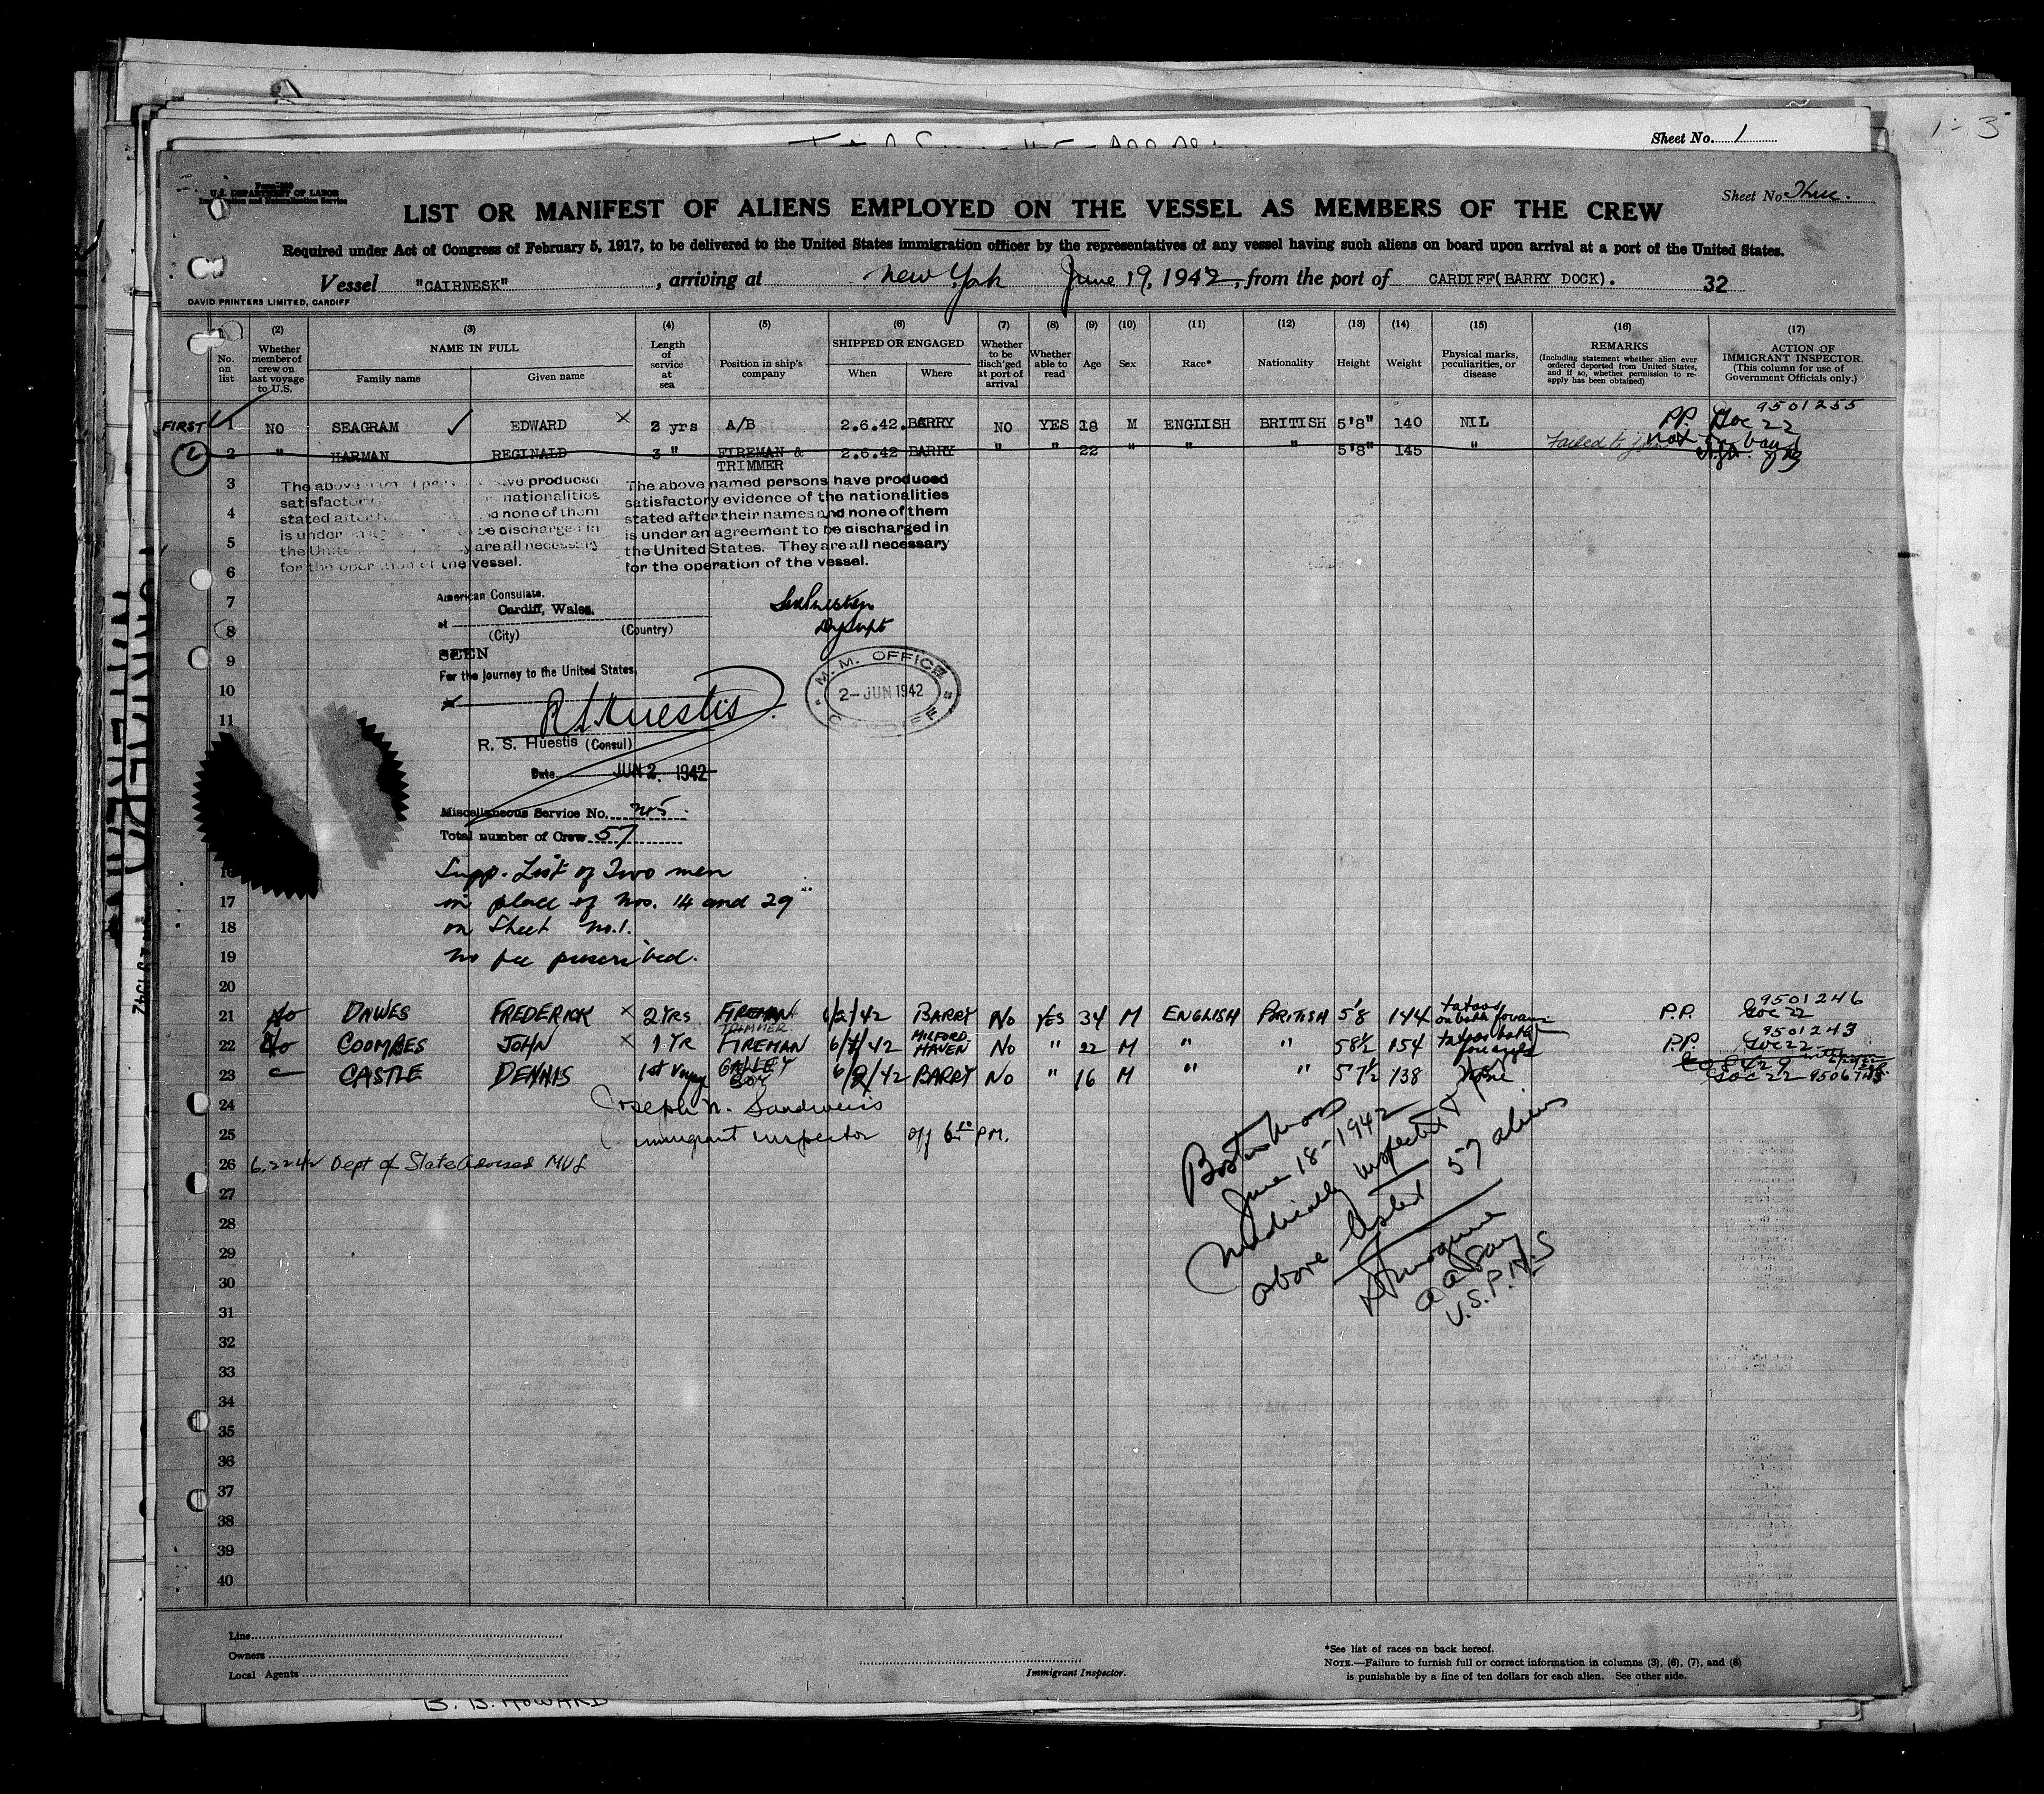 Sheet No. 1
1-3
Form 689
U.S. DEPARTMENT OF LABOR
Immigration and Naturalization Service
Sheet No. Three.
LIST OR MANIFEST OF ALIENS EMPLOYED ON THE VESSEL AS MEMBERS OF THE CREW
Required under Act of Congress of February 5, 1917, to be delivered to the United States immigration officer by the representatives of any vessel having such aliens on board upon arrival at a port of the United States.
Vessel "CAIRNESK", arriving at New York June 19, 1942, from the port of CARDIFF(BARRY DOCK). 32
DAVID PRINTERS LIMITED, CARDIFF
(2) (3) (4) (5) (6) (7) (8) (9) (10) (11) (12) (13) (14) (15) (16) (17)
No. on list
Whether member of crew on last voyage to U.S.
NAME IN FULL
Family name
Given name
Length of service at sea
Position in ship's company
SHIPPED OR ENGAGED
When
Where
Whether to be disch'ged at port of arrival
Whether able to read
Age
Sex
Race*
Nationality
Height
Weight
Physical marks, peculiarities, or disease
REMARKS
(Including statement whether alien ever ordered deported from United States, and if so, whether permission to re-apply has been obtained)
ACTION OF IMMIGRANT INSPECTOR.
(This column for use of Government Officials only.)
9501255
FIRST 1 NO SEAGRAM EDWARD 2 yrs A/B 2.6.42. BARRY NO YES 18 M ENGLISH BRITISH 5'8" 140 NIL P.P. Soc 22
2 " HARMAN REGINALD 3 " FIREMAN & TRIMMER 2.6.42 BARRY " " 22 " " " 5'8" 145 " Failed to join not on board
3 The above named persons have produced
satisfactory evidence of the nationalities
4 stated after their names and none of them
5 is under an agreement to be discharged in
the United States. They are all necessary
6 for the operation of the vessel.
American Consulate.
7 Cardiff, Wales.
at
8 (City) (Country)
SEEN
9 For the journey to the United States,
10
M. M. OFFICE
2 - JUN 1942
CARDIFF
11 R S Huestis
R. S. Huestis (Consul)
Date JUN 2. 1942
Miscellaneous Service No. 245
Total number of Crew 57
16 Supp. List of Two men
17 in place of Nos. 14 and 29
18 on Sheet No. 1.
19 No fee prescribed.
20
9501246
21 No DAWES FREDERICK 2 YRS FIREMAN TRIMMER 6/2/42 BARRY No YES 34 M ENGLISH BRITISH 5'8 144 tatoos on both forearms P.P. Soc 22
9501243
22 No COOMBES JOHN 1 YR FIREMAN 6/7/42 MILFORD HAVEN No " 22 M " " 5 8½ 154 P.P. Soc 22
23 CASTLE DENNIS 1st Voyage GALLEY BOY 6/2/42 BARRY No " 16 M " " 5 7½ 138 None Soc 22
24 Joseph N. Sandweiss
25 Immigrant Inspector off 6 10 P.M.
26 6.22.42 Dept of State Advised MVL
Boston Mass
June 18-1942
Medically inspected &
above listed 57 aliens
U.S.P.H.S
27
28
29
30
31
32
33
34
35
36
37
38
39
40
Line
Owners
Local Agents
Immigrant Inspector.
*See list of races on back hereof.
NOTE.—Failure to furnish full or correct information in columns (3), (6), (7), and (8)
is punishable by a fine of ten dollars for each alien. See other side.
B. B. HOWARD